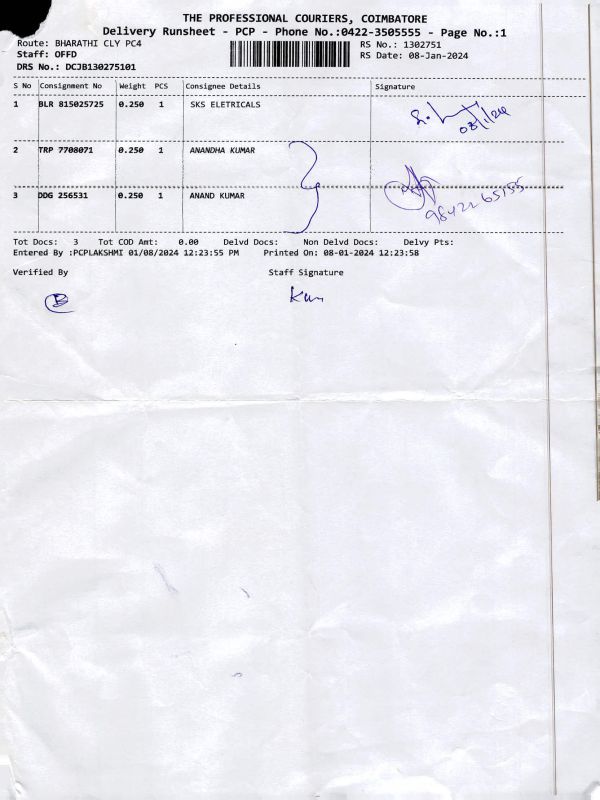 THE PROFESSIONAL COURIERS, COIMBATORE
Delivery Runsheet - PCP - Phone No.:0422-3505555 - Page No.:1
Route: BHARATHI CLY PC4 RS No.: 1302751
Staff: OFFD RS Date: 08-Jan-2024
DRS No.: DCJB130275101
S No Consignment No Weight PCS Consignee Details Signature
1 BLR 815025725 0.250 1 SKS ELETRICALS
08/1/24
2 TRP 7708071 0.250 1 ANANDHA KUMAR
3 DDG 256531 0.250 1 ANAND KUMAR
Tot Docs: 3 Tot COD Amt: 0.00 Delvd Docs: Non Delvd Docs: Delvy Pts:
Entered By :PCPLAKSHMI 01/08/2024 12:23:55 PM Printed On: 08-01-2024 12:23:58
Verified By Staff Signature